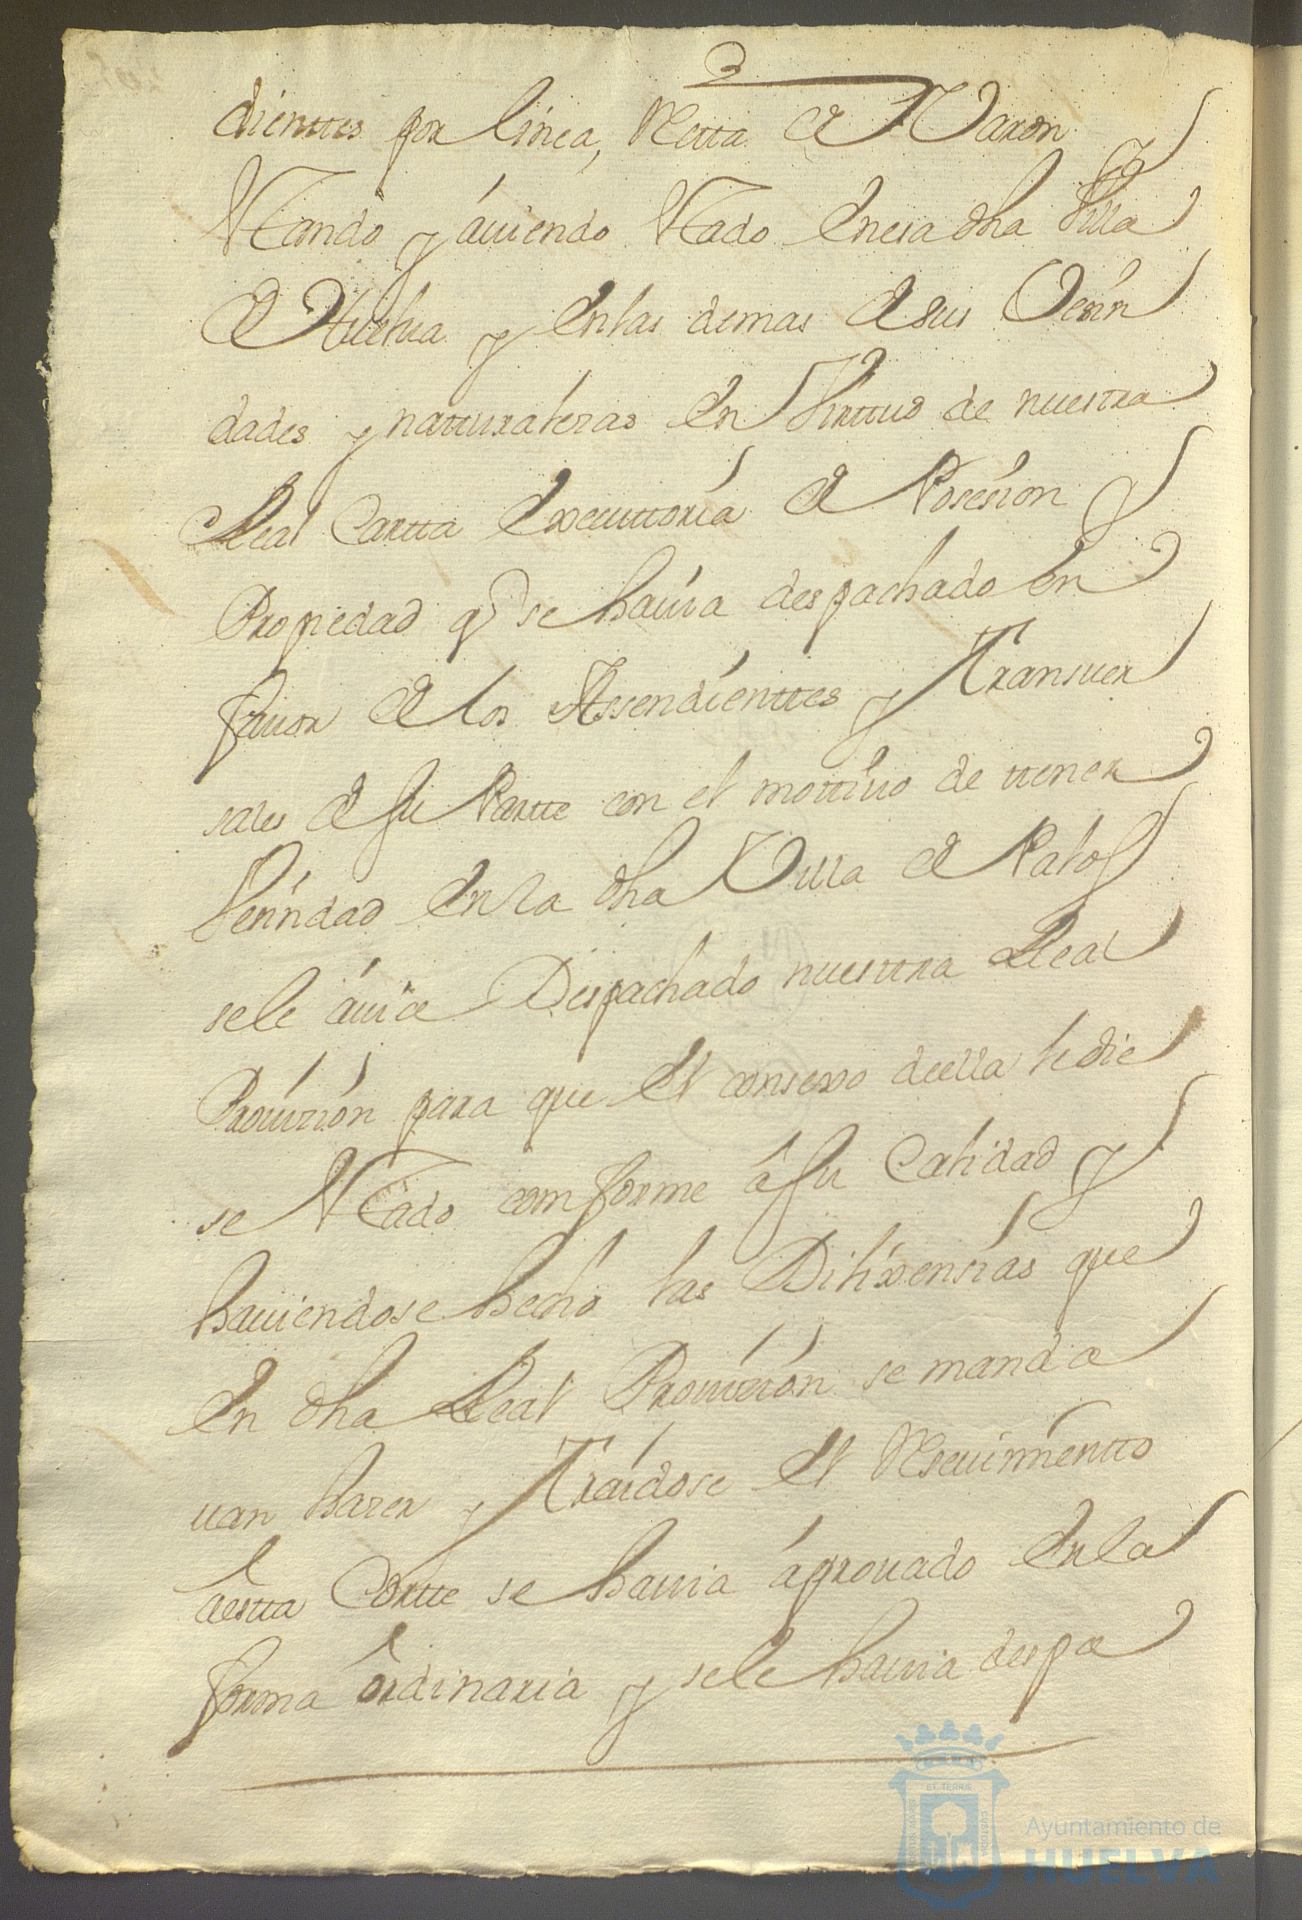 dienttes por linea, Retta de Varon
stando y áuiendo stado Enesa dha Villa
de Huelua y Enlas demas de sus Vecin
dades y natturalezas En Virttud de nuestra
Real Cartta Executtoria de Posesion y
Propiedad q̃ se hauia despachado en
fauor de los Assendienttes y Transuer
sales de su Partte con el mottiuo de ttener
Vecindad En la dha Villa de Palos
sele áuia Despachado nuesttra Real
Prouizión para que El consexo deella le die
se stado comforme á su Calidad y
hauiendose hecho las Dilixensias que
En dha Real Prouizión se manda
uan hazer y Traídose El Reseuimientto
á estta Cortte se hauia áprouado Enla
forma ordinaria y sele hauia despa
Ayuntamiento de
HUELVA